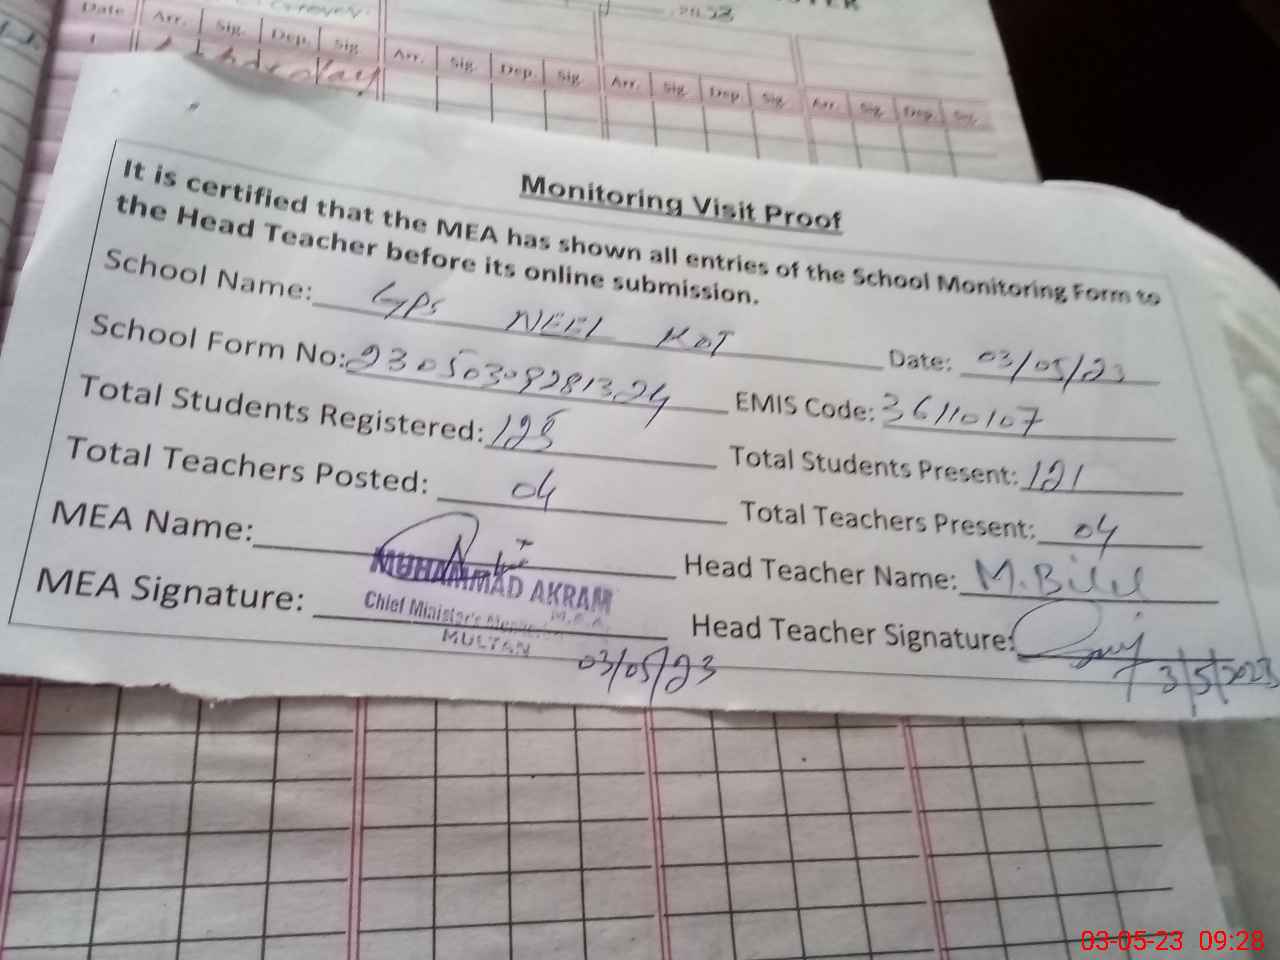 Date Arr. Sig. Dep. Sig. Arr. Sig. Dep. Sig. Arr. Sig. Dep. Sig. Arr. Sig. Dep. Sig.
Monitoring Visit Proof
It is certified that the MEA has shown all entries of the School Monitoring Form to
the Head Teacher before its online submission.
School Name: GPS NEEL KOT Date: 03/05/23
School Form No: 23050309281324 EMIS Code: 36110107
Total Students Registered: 125 Total Students Present: 121
Total Teachers Posted: 04 Total Teachers Present: 04
MEA Name: Head Teacher Name: M. Bilal
MUHAMMAD AKRAM
MEA Signature: Head Teacher Signature:
Chief Minister's
M.E.A.
MULTAN
03/05/23 3/5/2023
03-05-23 09:28